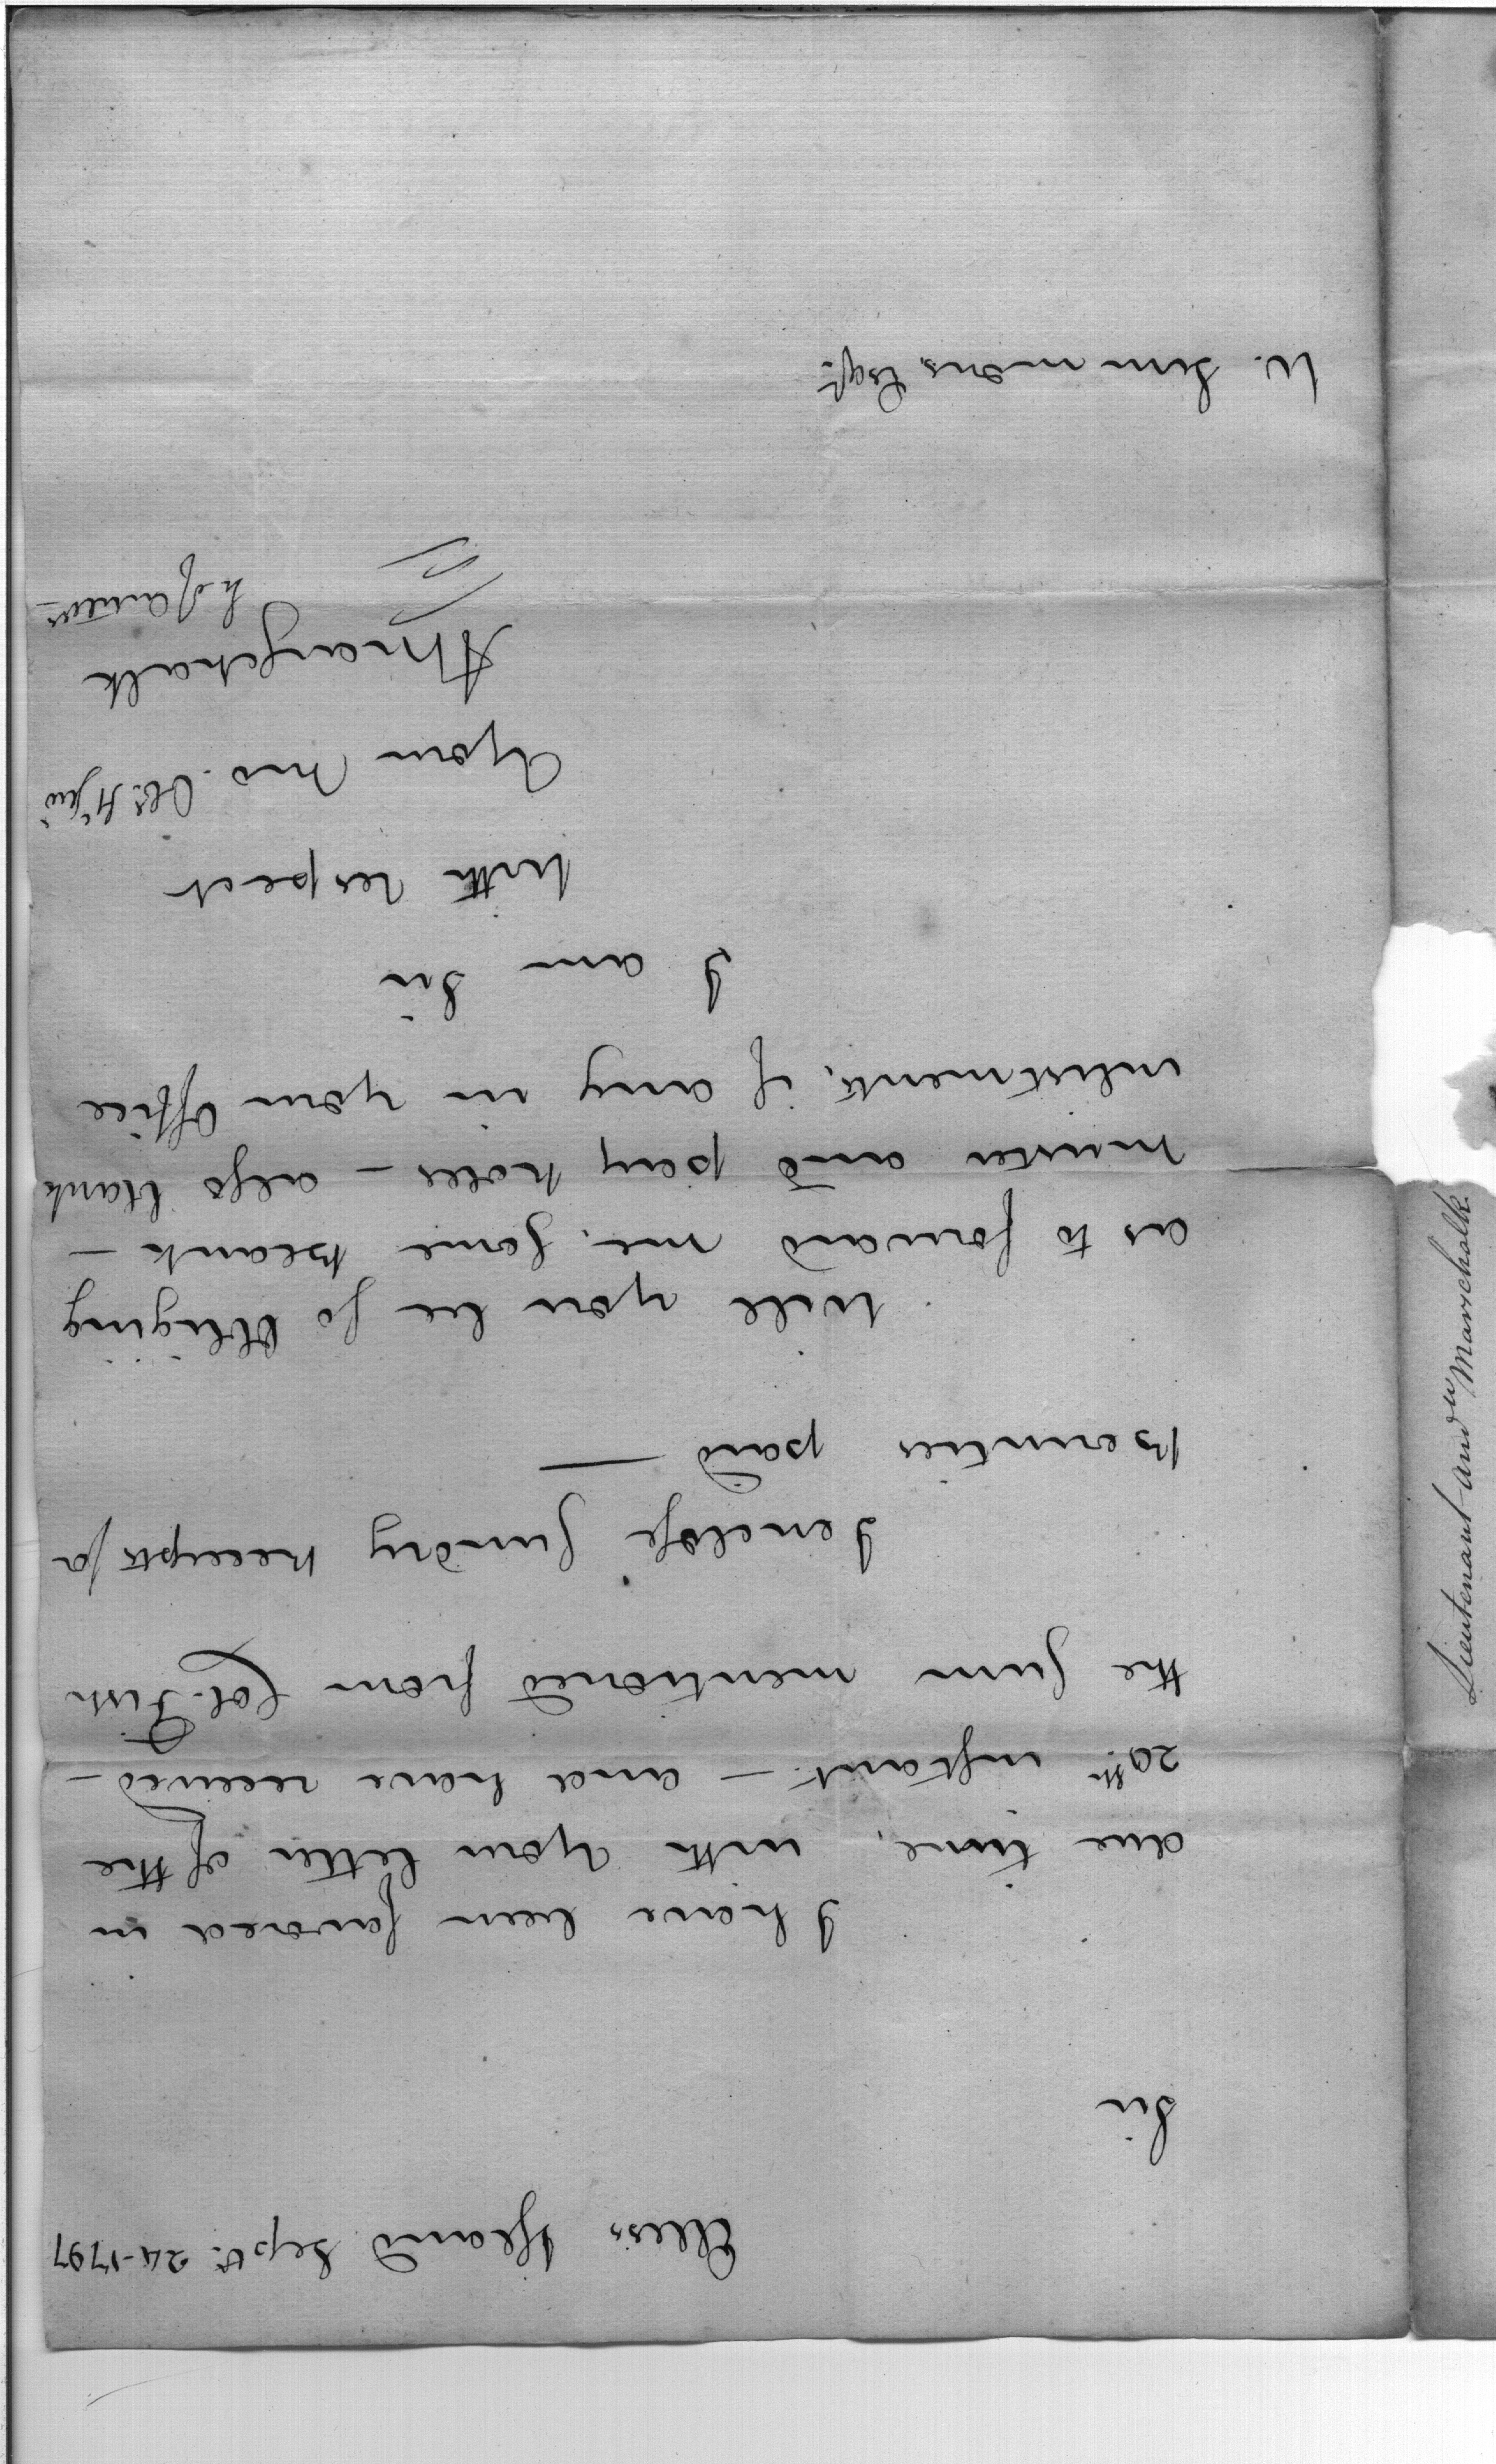 Elliss Island Sept. 24-1797
Sir
I have been favored in
due time, with your letter of the
20th instant. — and have received —
the sum mentioned from Col. Fish
I enclose sundry Receipts for
Bounties paid —
Will you be so Obliging
as to forward me, some blank —
Muster and pay Roles — also blank
inlistments, if any in your Office
I am Sir
With respect
Your Mo. Obt. H Sert
AMarschalk
W. Simmons Esqr.
Lieutenant And w Marschalk